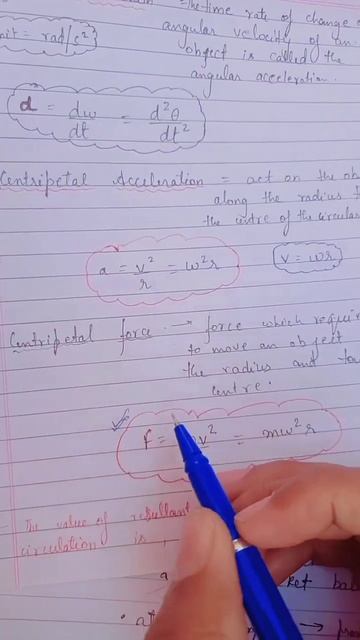 the time rate of change o
angular velocity of an
unit = rad/s²
object is called the
angular acceleration.
α = dω/dt = d²θ/dt²
Centripetal Acceleration = act on the ob
along the radius t
the centre of the circula
a = v²/r = ω²r
v = ωr
Centripetal force → force which requi
to move an object
the radius and to
centre.
f = v² = mω²r
The value of
circulation is
a
ket ba
• a